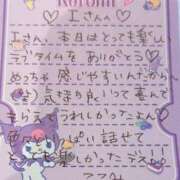 Kuromi
Iさんへ♡
Iさん、本日はとっても楽しい
ラブタイムを ありがとう♡
めっちゃ 感じやすいんだから
気持ち良いって 喜んで
もらえて うれしかったよ
色々 いっぱい 話せて
とっても 楽しかったデス!!